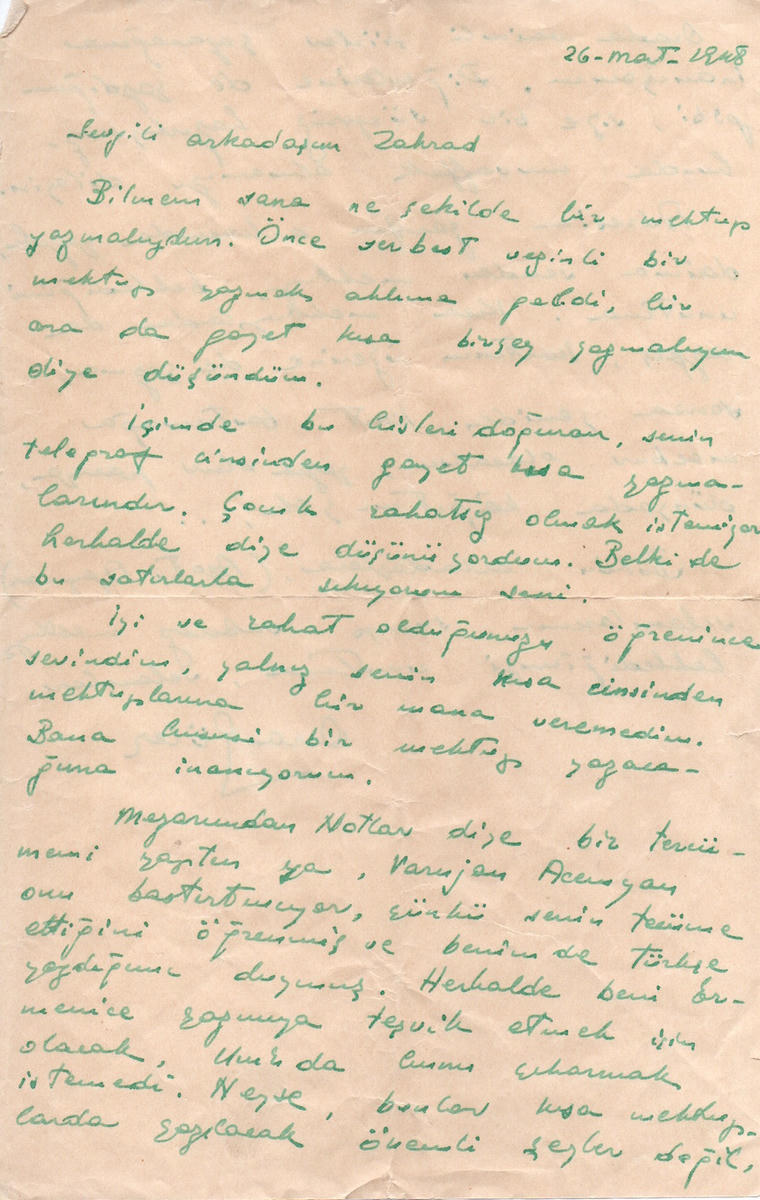 26-mat-1948
Sevgili arkadaşım Zahrad
Bilmem sana ne şekilde bir mektup
yazmalıydım. Önce serbest vezinli bir
mektup yazmak aklıma geldi, bir
ara da gayet kısa birşey yazmalıyım
diye düşündüm.
İçimde bu hisleri doğuran, senin
telegraf cinsinden gayet kısa yazma-
larındır. Çocuk rahatsız olmak istemiyor
herhalde diye düşünüyordum. Belki de
bu satırlarla sıkıyorum seni.
İyi ve rahat olduğunuzu öğrenince
sevindim, yalnız senin kısa cinsinden
mektuplarına bir mana veremedim.
Bana hususi bir mektup yazaca-
ğına inanıyorum.
Mezarımdan Notlar diye bir tercü-
memi yaptın ya, Varujan Acemyan
onu bastırtmıyor, çünkü senin tercüme
ettiğini öğrenmiş ve benim de Türkçe
yazdığımı duymuş. Herhalde beni Er-
menice yazmıya teşvik etmek için
olacak, bunu çıkarmak
istemedi. Neyse, bunlar kısa mektup-
larda yazılacak önemli şeyler değil,